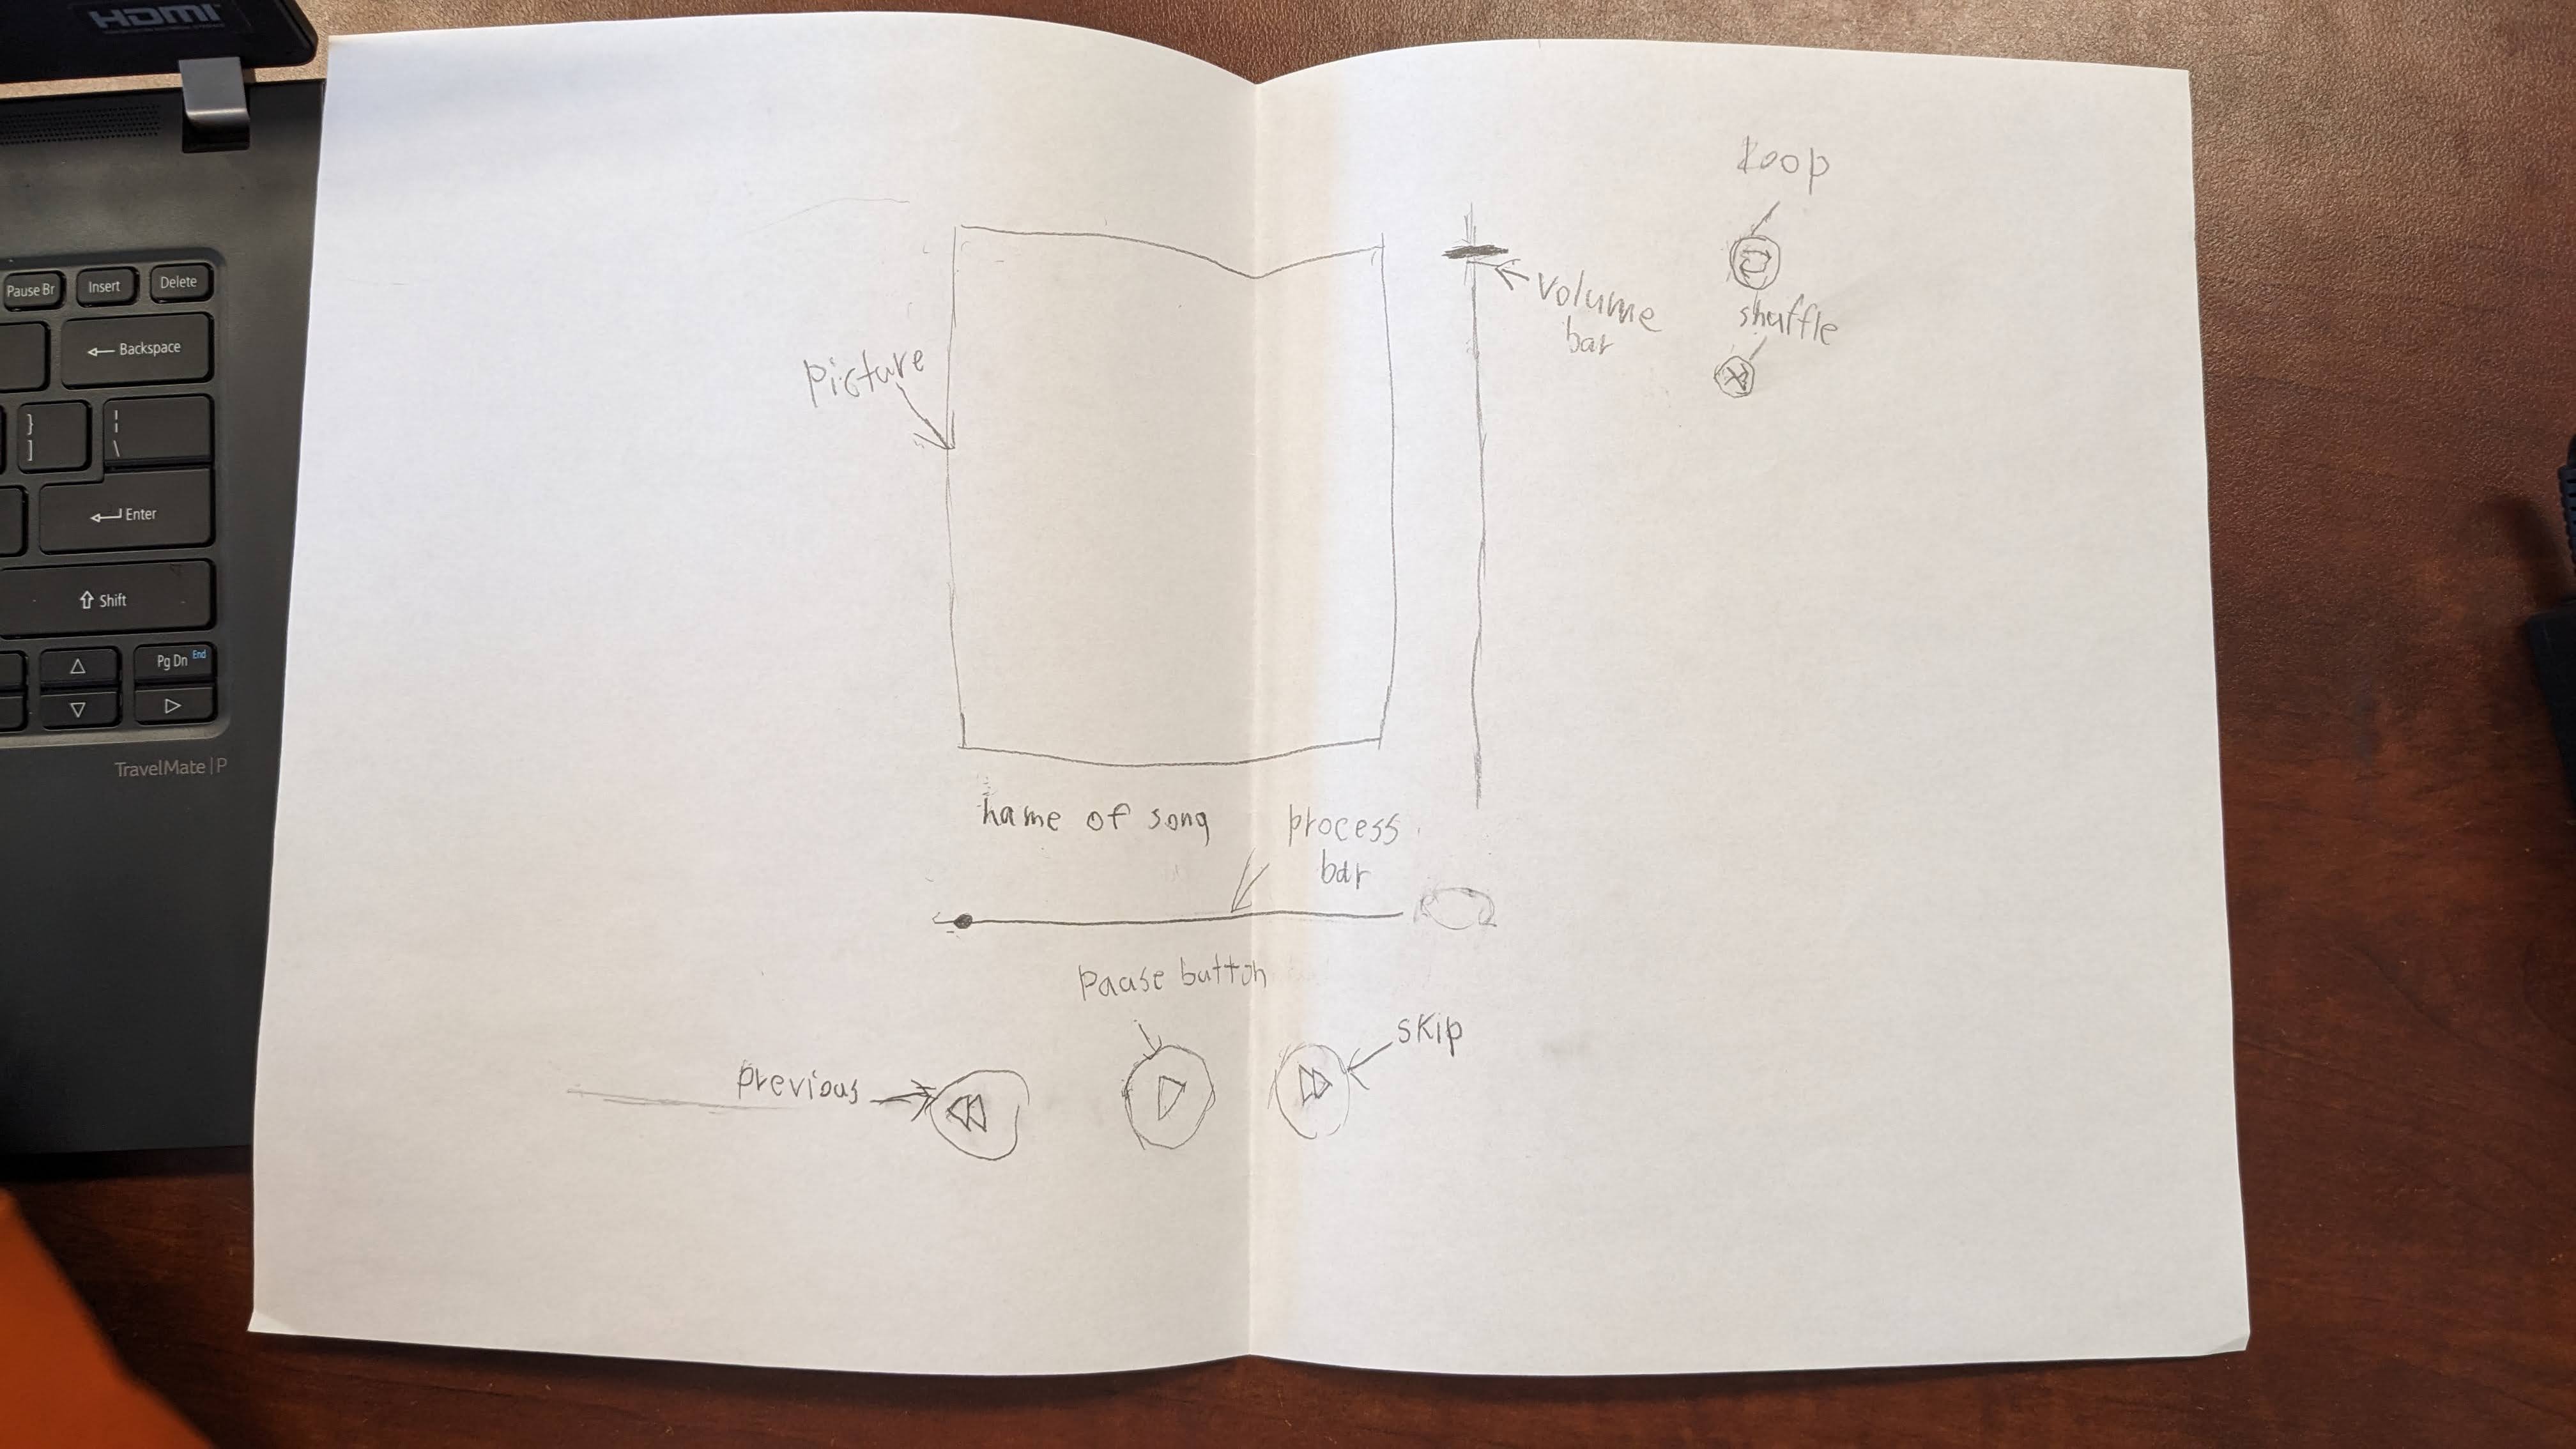 HDMI
Pause Br
Insert
Delete
Backspace
}
]
¦
\
Enter
Shift
Pg Dn End
TravelMate | P
Loop
shuffle
volume
bar
picture
name of song
process
bar
pause button
previous
skip